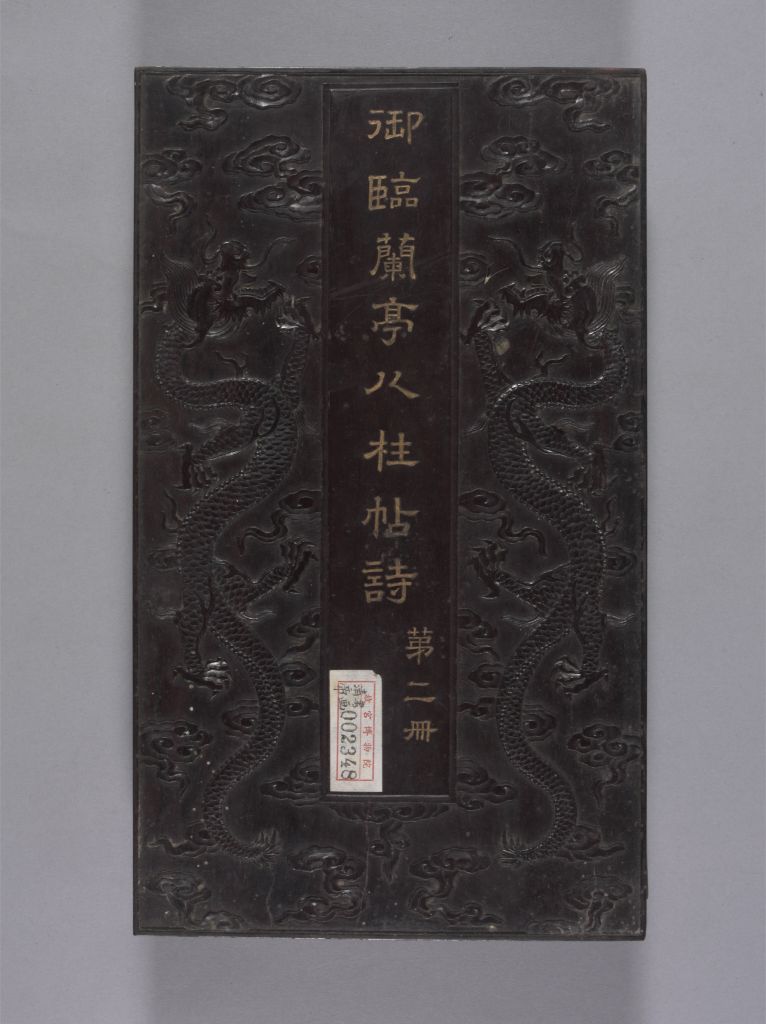 御臨蘭亭八柱帖詩
第二册
故宮博物院
002348